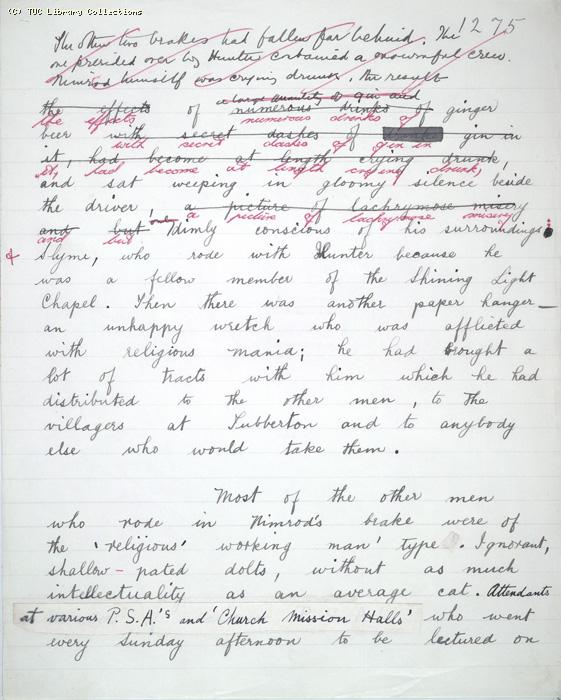 (C) TUC Library Collections
1275
The other two brakes had fallen far behind. The
one presided over by Hunter contained a mournful crew.
Nimrod himself was crying drunk, the result
a large quantity of gin and
the effects of numerous drinks of ginger
the effects numerous drinks of
beer with secret dashes of gin in
with secret dashes of gin in
it, had become at length crying drunk,
it, had become at length crying drunk,
and sat weeping in gloomy silence beside
the driver, a picture of lachrymose misery
a picture of lachrymose misery
and but dimly conscious of his surroundings
and but
& Slyme, who rode with Hunter because he
was a fellow member of the Shining Light
Chapel. Then there was another paper hanger—
an unhappy wretch who was afflicted
with religious mania; he had brought a
lot of tracts with him which he had
distributed to the other men, to the
villagers at Tubberton and to anybody
else who would take them.
Most of the other men
who rode in Nimrod's brake were of
the 'religious' working man' type. Ignorant,
shallow-pated dolts, without as much
intellectuality as an average cat. Attendants
at various P.S.A.'s and 'Church Mission Halls' who went
every Sunday afternoon to be lectured on